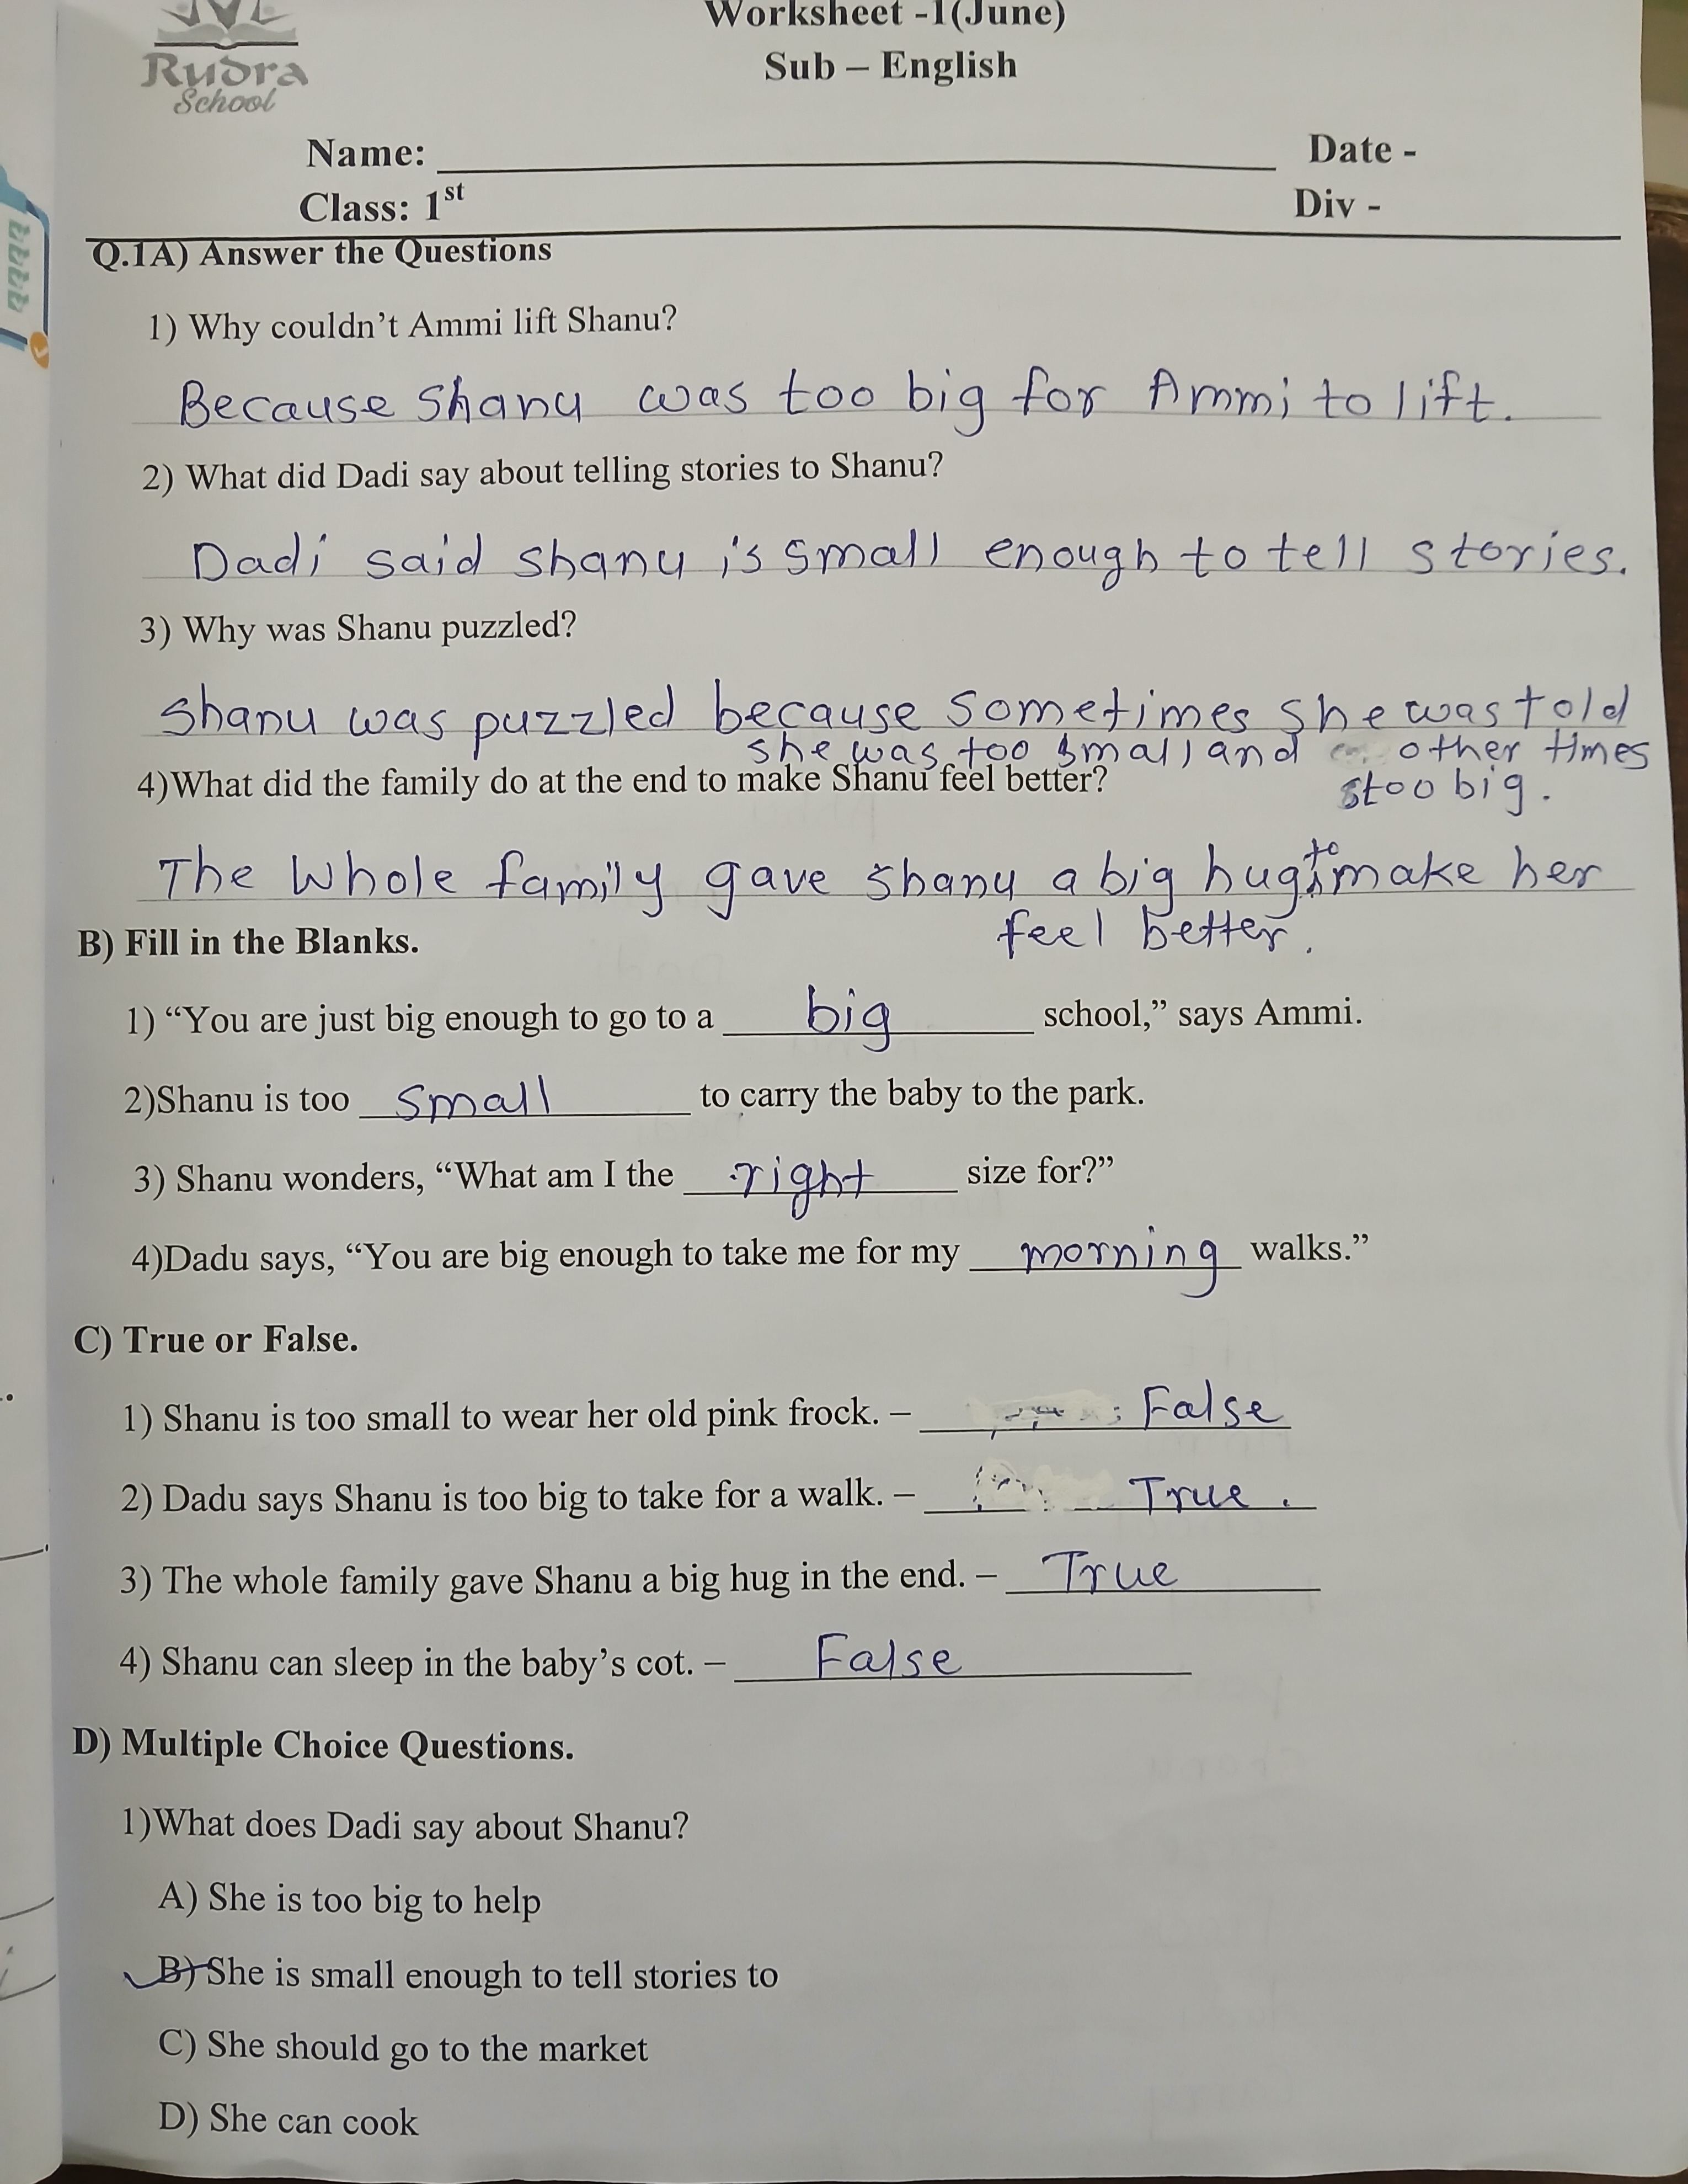 Worksheet -1(June)
Rudra
School
Sub – English
Name: Date -
Class: 1st Div -
Q.1A) Answer the Questions
1) Why couldn't Ammi lift Shanu?
Because Shanu was too big for Ammi to lift.
2) What did Dadi say about telling stories to Shanu?
Dadi said shanu is small enough to tell stories.
3) Why was Shanu puzzled?
Shanu was puzzled because sometimes she was told
she was too small and other times
too big.
4)What did the family do at the end to make Shanu feel better?
The whole family gave shanu a big hug to make her
feel better.
B) Fill in the Blanks.
1) “You are just big enough to go to a big school,” says Ammi.
2)Shanu is too small to carry the baby to the park.
3) Shanu wonders, “What am I the right size for?”
4)Dadu says, “You are big enough to take me for my morning walks.”
C) True or False.
1) Shanu is too small to wear her old pink frock. – False
2) Dadu says Shanu is too big to take for a walk. – True.
3) The whole family gave Shanu a big hug in the end. – True
4) Shanu can sleep in the baby's cot. – False
D) Multiple Choice Questions.
1)What does Dadi say about Shanu?
A) She is too big to help
B) She is small enough to tell stories to
C) She should go to the market
D) She can cook